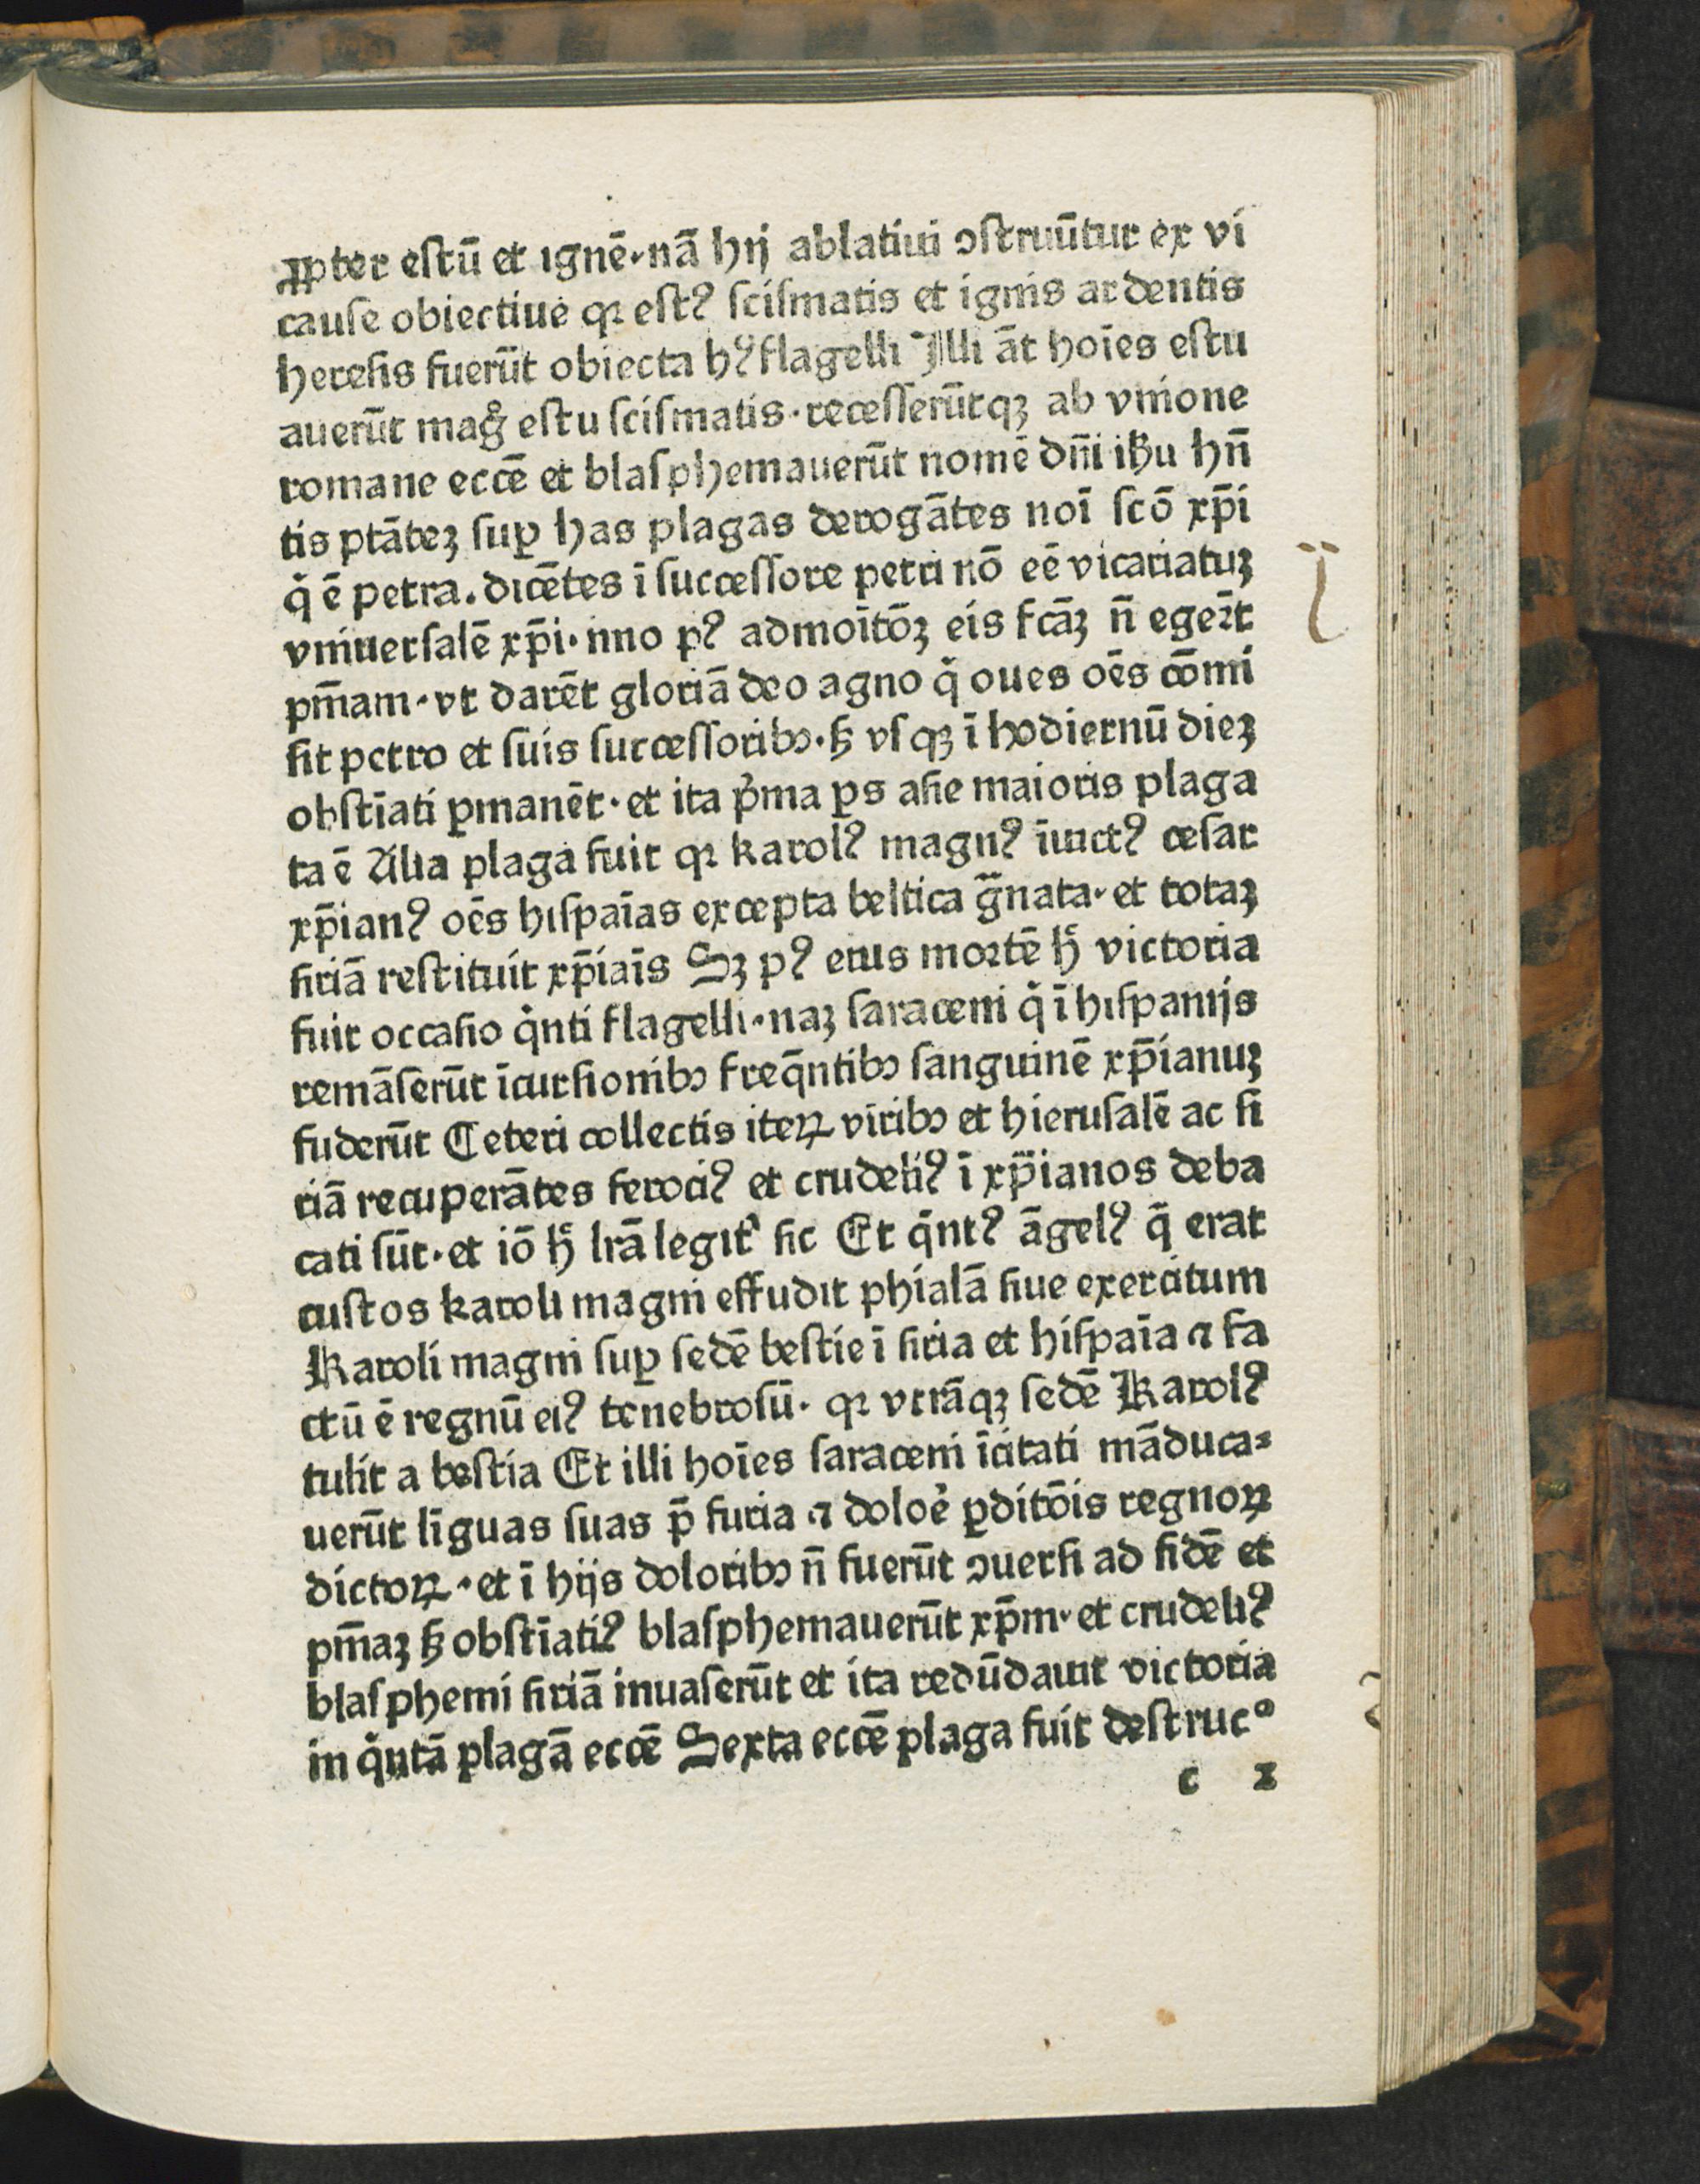 ꝓpter eſtū et ignē·nā hij ablatiui ꝯſtruūtur ex vi
cauſe obiectiue qꝛ eſtꝰ ſciſmatis et ignis ardentis
hereſis fuerūt obiecta hꝰ flagelli Illi āt hoīes eſtu
auerūt magͦ eſtu ſciſmatis·receſſerūtqꝫ ab vnione
romane eccē et blaſphemauerūt nomē dn̄i ihu hn̄
tis ptāteꝫ ſuꝑ has plagas derogātes noī ſcō xp̄i
q̇ ē petra. dicētes ī ſucceſſore petri nō eē vicariatuꝫ
vniuerſalē xp̄i·nno pꝰ admoītōꝫ eis fcāꝫ n̄ egeꝛ̄t
pn̄iam·vt darēt gloriā deo agno q̇ oues oēs cōmi
ſit petro et ſuis ſucceſſoribꝫ·ſꝫ vſqꝫ ī hodiernū dieꝫ
obſtīati ꝑmanēt·et ita pͥma ꝑs aſie maioris plaga
ta ē Alia plaga fuit qꝛ karolꝰ magnꝰ īuictꝰ ceſar
xp̄ianꝰ oēs hiſpaīas excepta beltica gͣnata·et totaꝫ
ſiriā reſtituit xp̄iaīs Sꝫ pꝰ eius mortē hͨ victoria
fuit occaſio q̇nti flagelli·naꝫ ſaraceni q̇ ī hiſpanijs
remāſerūt īcurſionibꝫ freq̄ntibꝫ ſanguinē xp̄ianuꝫ
fuderūt Ceteri collectis iteꝝ viribꝫ et hieruſalē ac ſi
riā recuperātes ferociꝰ et crudeliꝰ ī xp̄ianos deba
cati ſūt·et iō hͨ lrā legitˀ ſic Et q̇ntꝰ āgelꝰ q̇ erat
cuſtos karoli magni effudit phialā ſiue exercitum
Karoli magni ſuꝑ ſedē beſtie ī ſiria et hiſpaīa ⁊ fa
ctū ē regnū eiꝰ tenebroſū· qꝛ vtrāqꝫ ſedē Karolꝰ
tulit a beſtia Et illi hoīes ſaraceni īcitati māduca⸗
uerūt līguas ſuas p̄ furia ⁊ doloē ꝑditōis regnoꝝ
dictoꝝ·et ī hijs doloribꝫ n̄ fuerūt ꝯuerſi ad fidē et
pn̄iaꝫ ſꝫ obſtīatiꝰ blaſphemauerūt xp̄m·et crudeliꝰ
blaſphemi ſiriā inuaſerūt et ita redūdauit victoria
in q̇ntā plagā eccē Sexta eccē plaga fuit deſtrucᵒ
c 2